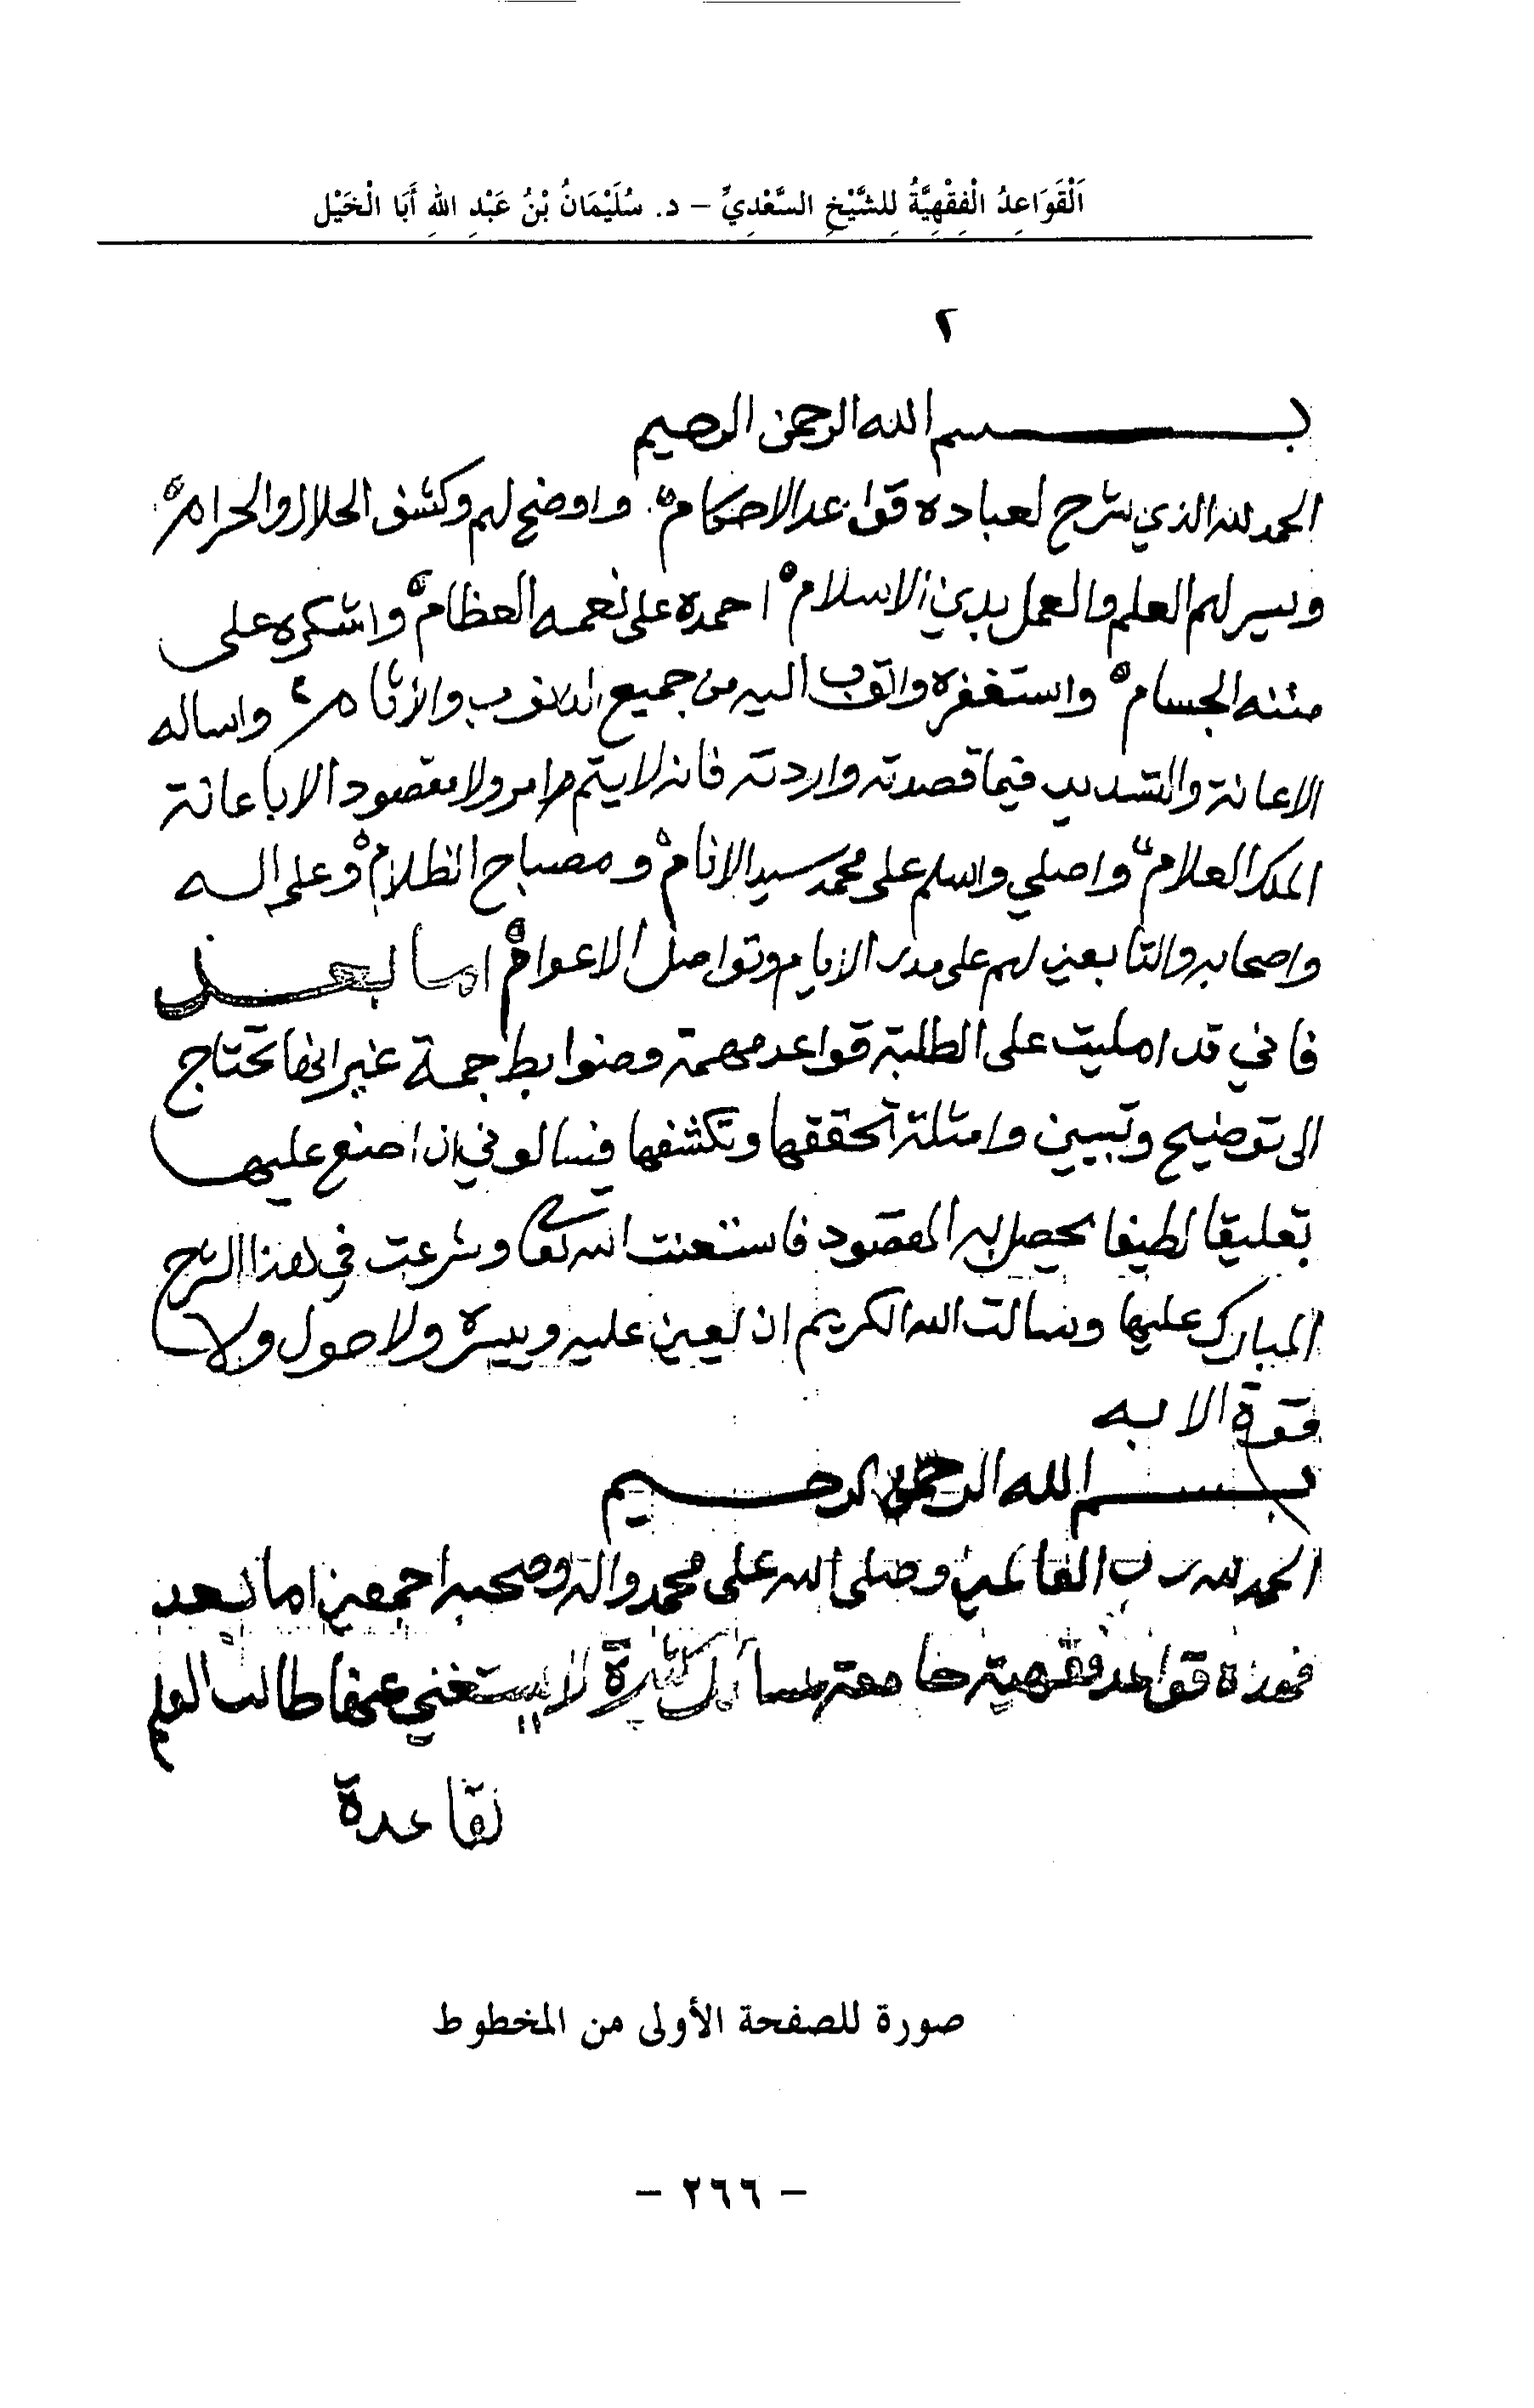 اَلْقَوَاعِدُ الْفِقْهِيَّةُ لِلشَّيْخِ السَّعْدِيِّ – د. سُلَيْمَانُ بْنُ عَبْدِ اللهِ أَبَا الْخَيْل
٢
بسم الله الرحمن الرحيم
الحمد لله الذي شرح لعباده قواعد الاحكام واوضح لهم وكشف الحلال والحرام
ويسر لهم العلم والعمل بدين الاسلام احمده على نعمه العظام واشكره على
مننه الجسام واستغفره واتوب اليه من جميع الذنوب والاثام واساله
الاعانة والتسديد فيما قصدته واردته فانه لا يتم امر ولا مقصود الا باعانة
الملك العلام واصلي واسلم على محمد سيد الانام ومصباح الظلام وعلى اله
واصحابه والتابعين لهم على مدى الايام وتواصل الاعوام اما بعد
فاني قد امليت على الطلبة قواعد مهمة وضوابط جمة غير انها تحتاج
الى توضيح وتبيين وامثلة تحققها وتكشفها فسالوني ان اصنع عليها
تعليقا لطيفا يحصل به المقصود فاستعنت الله تعالى وشرعت في هذا الشرح
المبارك عليها وسالت الله الكريم ان يعين عليه وييسره ولا حول ولا
قوة الا به
بسم الله الرحمن الرحيم
الحمد لله رب العالمين وصلى الله على محمد واله وصحبه اجمعين اما بعد
فهذه قواعد فقهية جامعة لمسائل كثيرة لا يستغني عنها طالب العلم
لقاعدة
صورة للصفحة الأولى من المخطوط
– ٢٦٦ –